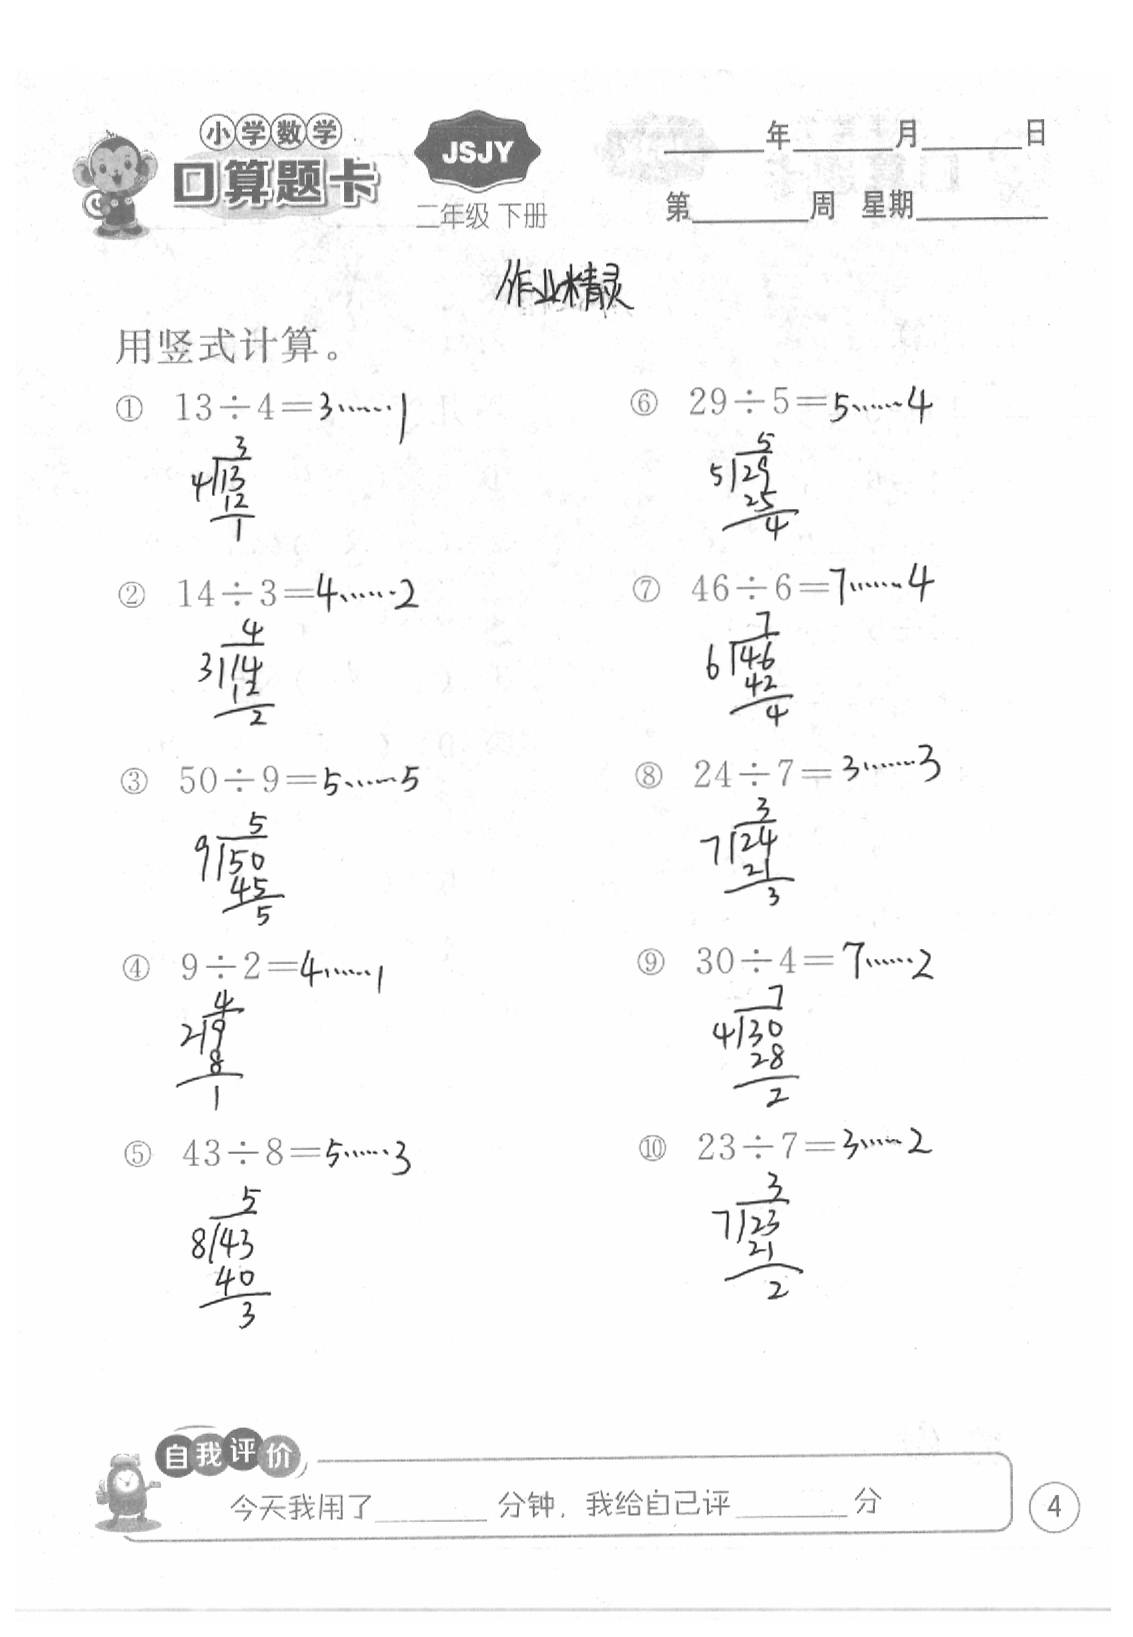 小学数学
口算题卡
JSJY
二年级 下册
____年____月____日
第____周 星期____
作业精灵
用竖式计算。
① 13÷4=3……1
3
4 13
12
1
② 14÷3=4……2
4
3 14
12
2
③ 50÷9=5……5
5
9 50
45
5
④ 9÷2=4……1
4
2 9
8
1
⑤ 43÷8=5……3
5
8 43
40
3
⑥ 29÷5=5……4
5
5 29
25
4
⑦ 46÷6=7……4
7
6 46
42
4
⑧ 24÷7=3……3
3
7 24
21
3
⑨ 30÷4=7……2
7
4 30
28
2
⑩ 23÷7=3……2
3
7 23
21
2
自我评价
今天我用了____分钟，我给自己评____分
4